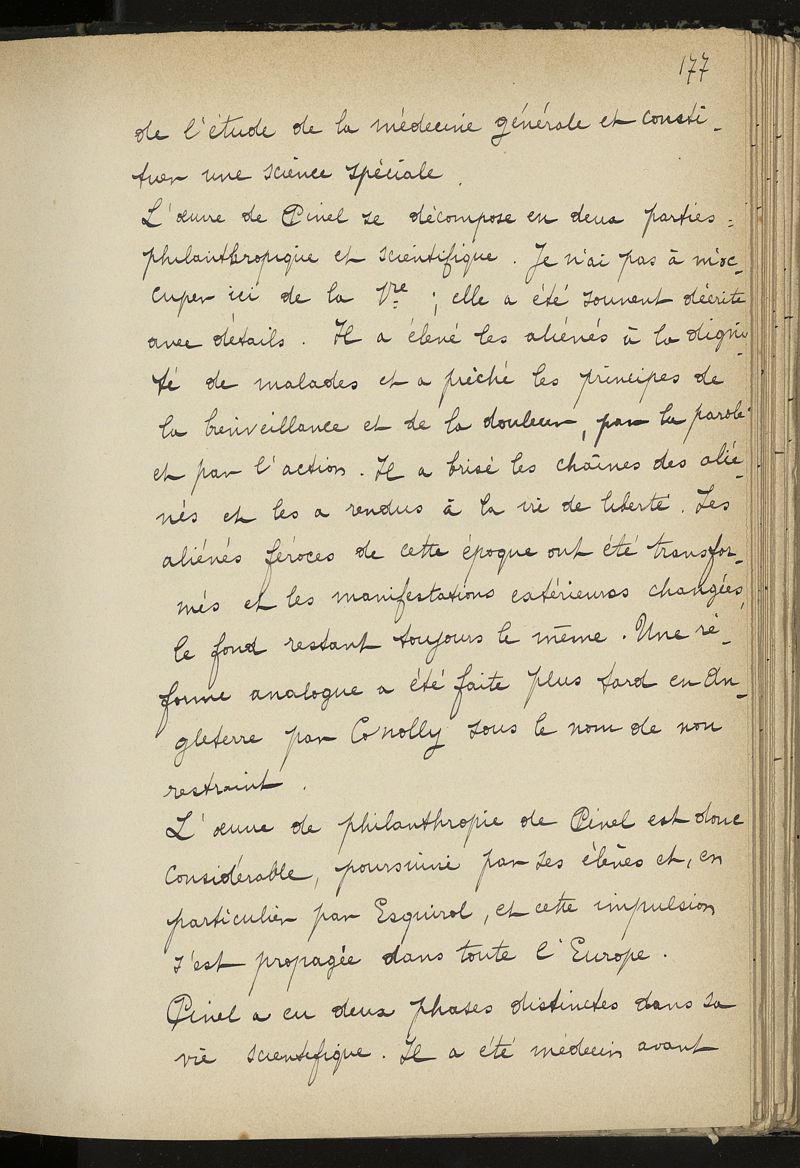 177
de l'étude de la médecine générale et consti-
tuer une science spéciale.
L'œuvre de Pinel se décompose en deux parties :
philanthropique et scientifique. Je n'ai pas à m'oc-
cuper ici de la 1re ; elle a été souvent décrite
avec détails. Il a élevé les aliénés à la digni-
té de malades et a prêché les principes de
la bienveillance et de la douleur, par la parole
et par l'action. Il a brisé les chaînes des alié-
nés et les a rendus à la vie de liberté. Les
aliénés féroces de cette époque ont été transfor-
més et les manifestations extérieures changées,
le fond restant toujours le même. Une ré-
forme analogue a été faite plus tard en An-
gleterre par Conolly sous le nom de non
restraint.
L'œuvre de philanthropie de Pinel est donc
considérable, poursuivie par ses élèves et, en
particulier par Esquirol, et cette impulsion
s'est propagée dans toute l'Europe.
Pinel a eu deux phases distinctes dans sa
vie scientifique. Il a été médecin avant